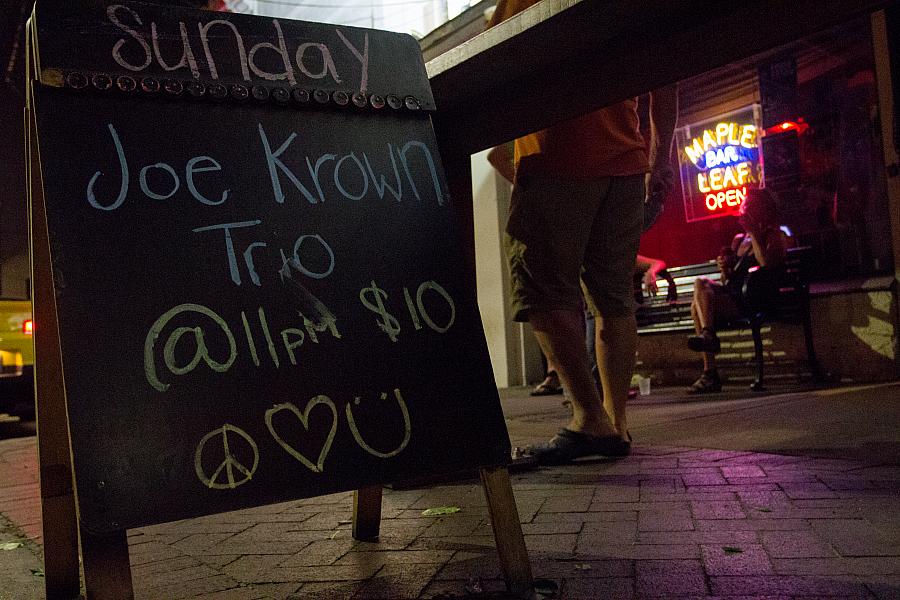 Sunday
Joe Krown
Trio
@11pm $10
MAPLE
BAR
LEAF
OPEN